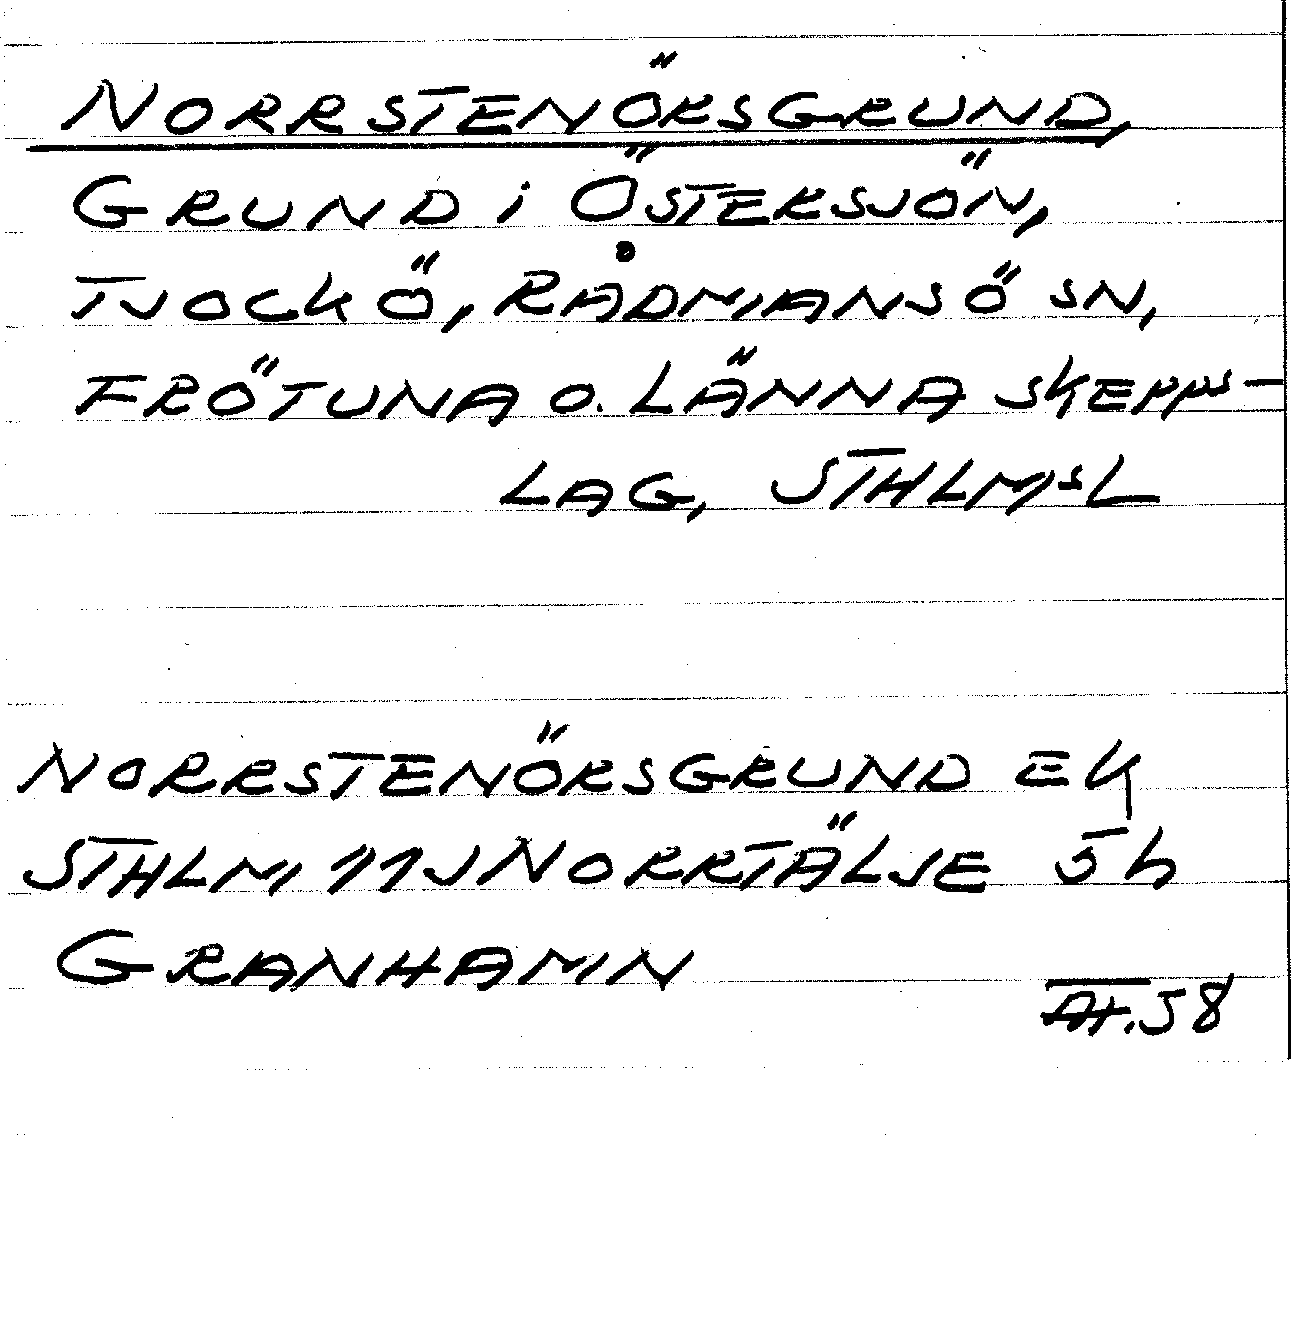 NORRSTENÖRSGRUND,
GRUND i ÖSTERSJÖN,
TJOCKÖ, RÅDMANSÖ SN,
FRÖTUNA O. LÄNNA SKEPPS-
LAG, STHLMSL
NORRSTENÖRSGRUND EK
STHLM 11J NORRTÄLJE 5h
GRANHAMN
58